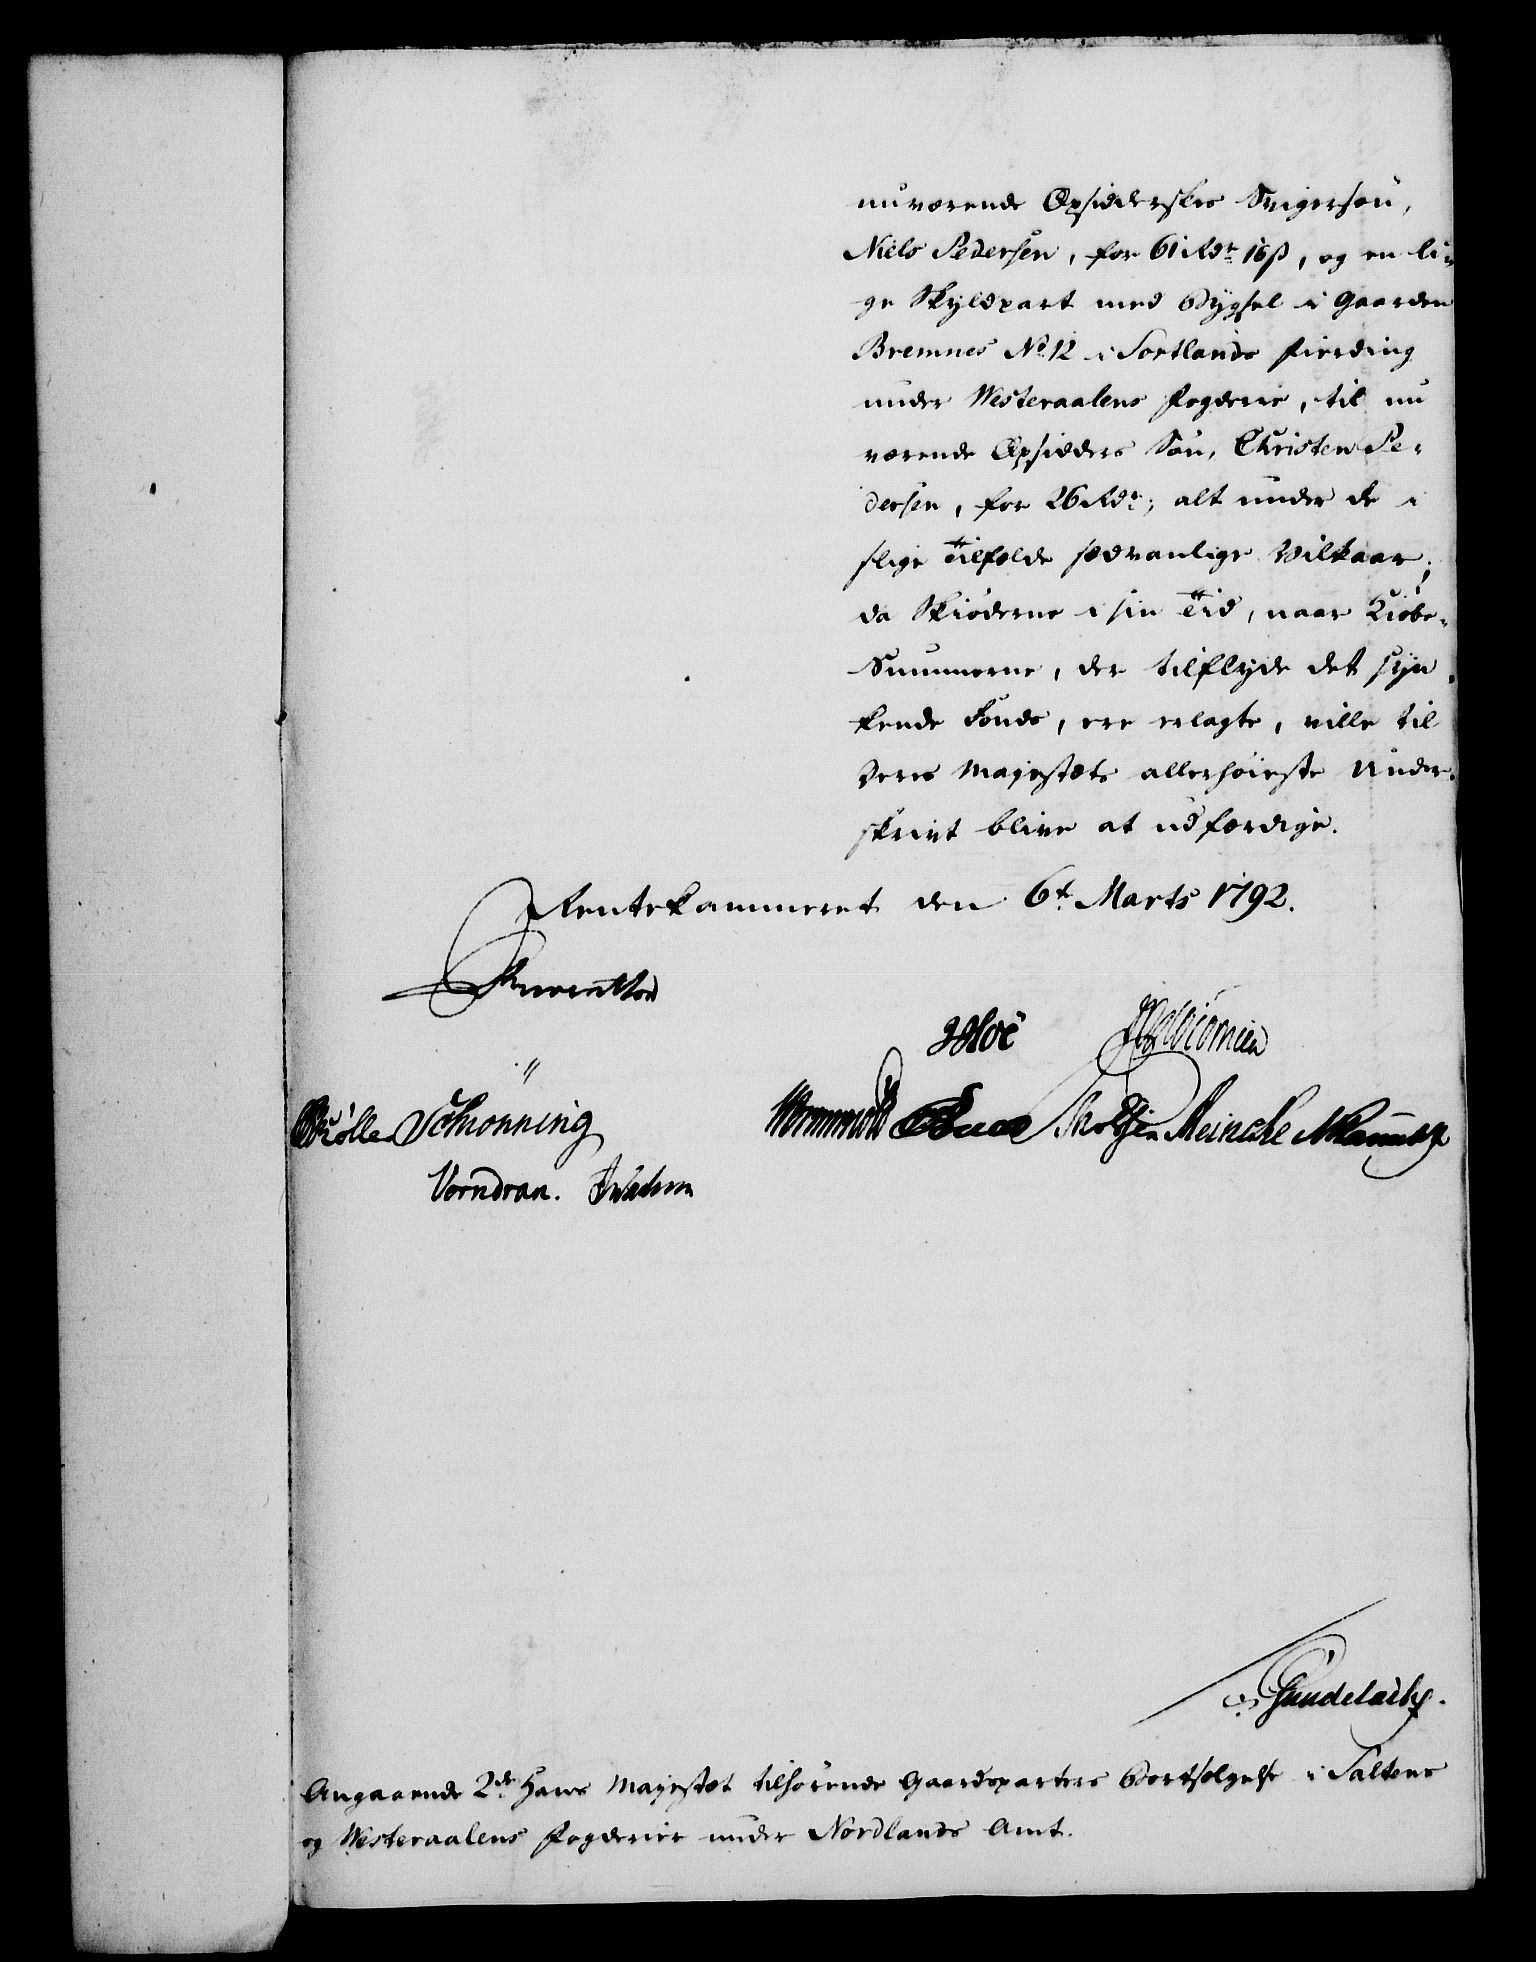 nuværende Opsidderskes Svigersøn,
Niels Pedersen, for 61 Rdr. 16 ß, og en lii-
ge Skyldpart med Bygsel i Gaarden
Bremnes No. 12 i Sortlands Fierding
under Westeraalens Fogderie, til nu
værende Opsidders Søn, Christen Pe-
dersen, for 26 Rdr.; alt under de i
slige Tilfælde sædvanlige Vilkaar;
da Skiøderne i sin Tid, naar Kiøbe-
Summerne, der tilflyde det syn-
kende Fonds, ere erlagte, ville til
Deres Majestæts allerhøieste Under-
skrivt blive at udfærdige.
Rentekammeret den 6t. Marts 1792.
Reventlow
Hoë
Møller Schiønning
Wormskiold Skibsted Meincke
Vorndran.
Gundelach.
Angaaende 2de Hans Majestæt tilhørende Gaardsparters Bortsælgelse i Saltens
og Westeraalens Fogderier under Nordlands Amt.